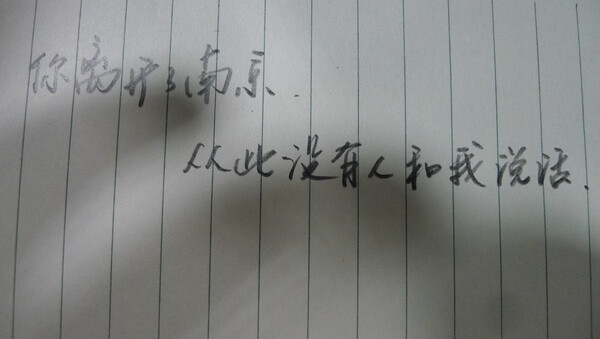 你离开了南京.
从此没有人和我说话.